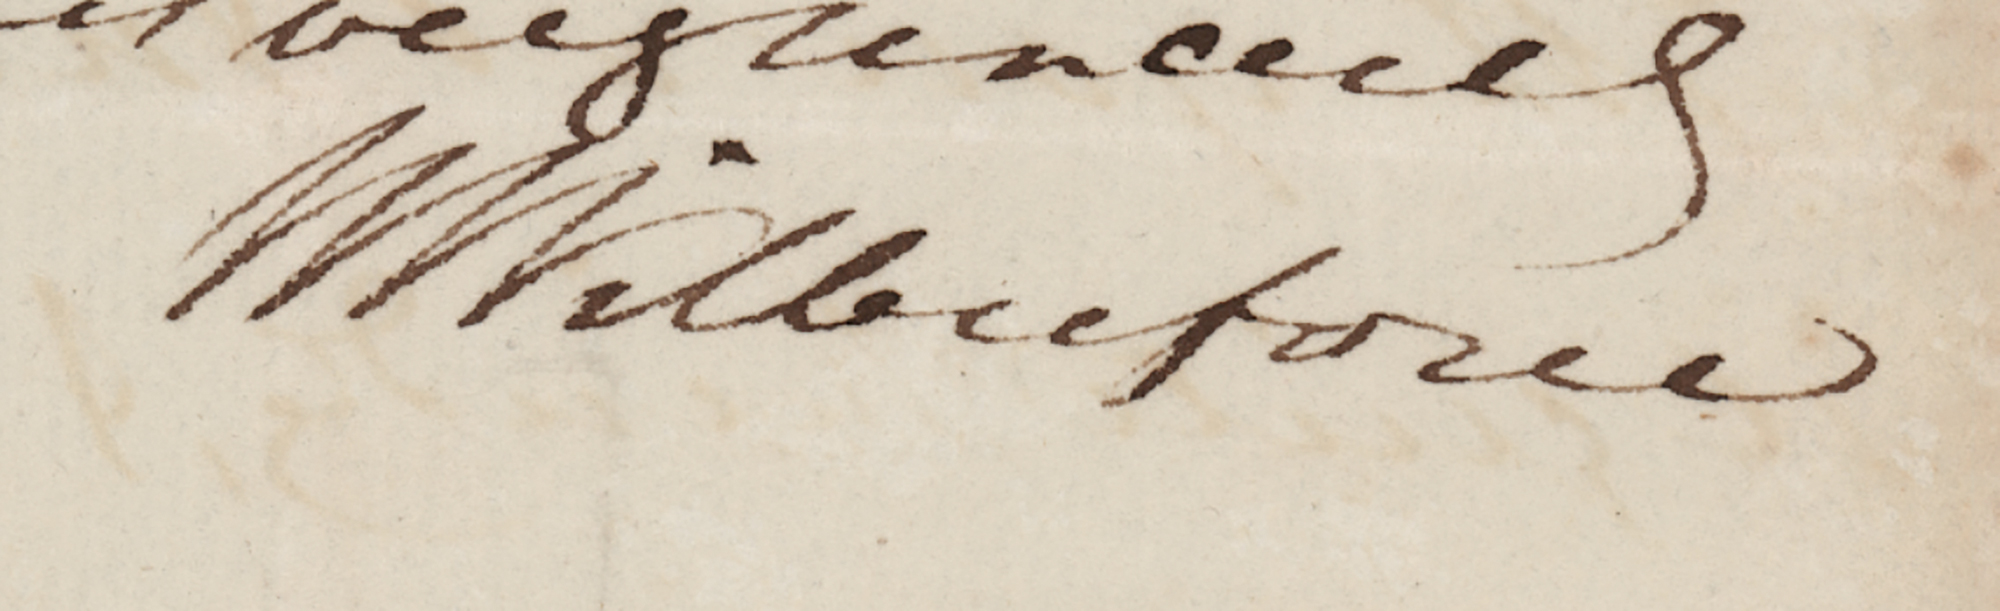 very sincerely
W Wilberforce